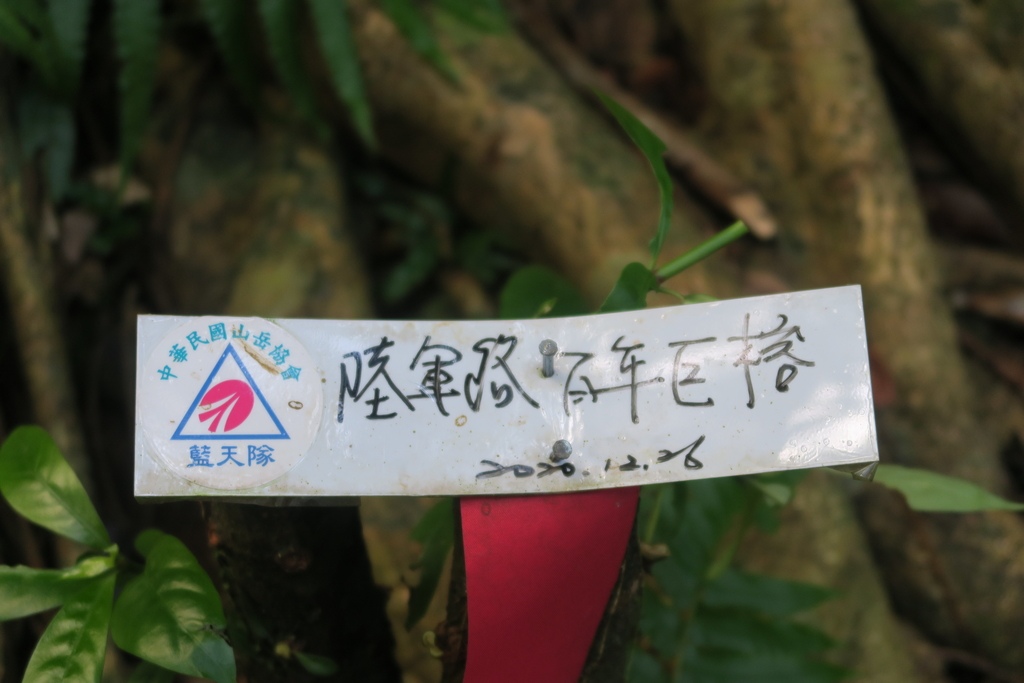 中華民國山岳協會
藍天隊
陸軍路 百年巨榙
2020.12.26